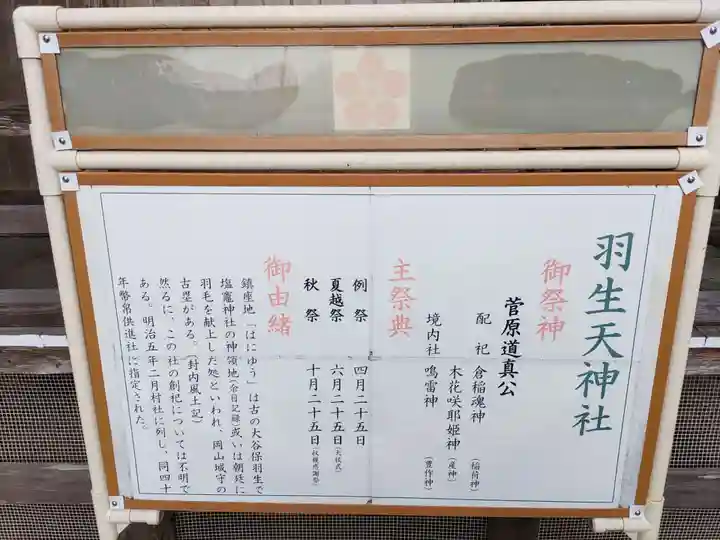 羽生天神社
御祭神
菅原道真公
配祀 倉稲魂神(稲荷神)
木花咲耶姫神(産神)
境内社 鳴雷神(豊作神)
主祭典
例祭 四月二十五日
夏越祭 六月二十五日(大祓式)
秋祭 十月二十五日(収穫感謝祭)
御由緒
鎮座地「はにゆう」は古の大谷保羽生で
塩竈神社の神領地(余目記録)或いは朝廷に
羽毛を献上した処といわれ、岡山城守の
古塁がある。(封内風土記)
然るに、この社の創祀については不明で
ある。明治五年二月村社に列し、同四十
年幣帛供進社に指定された。